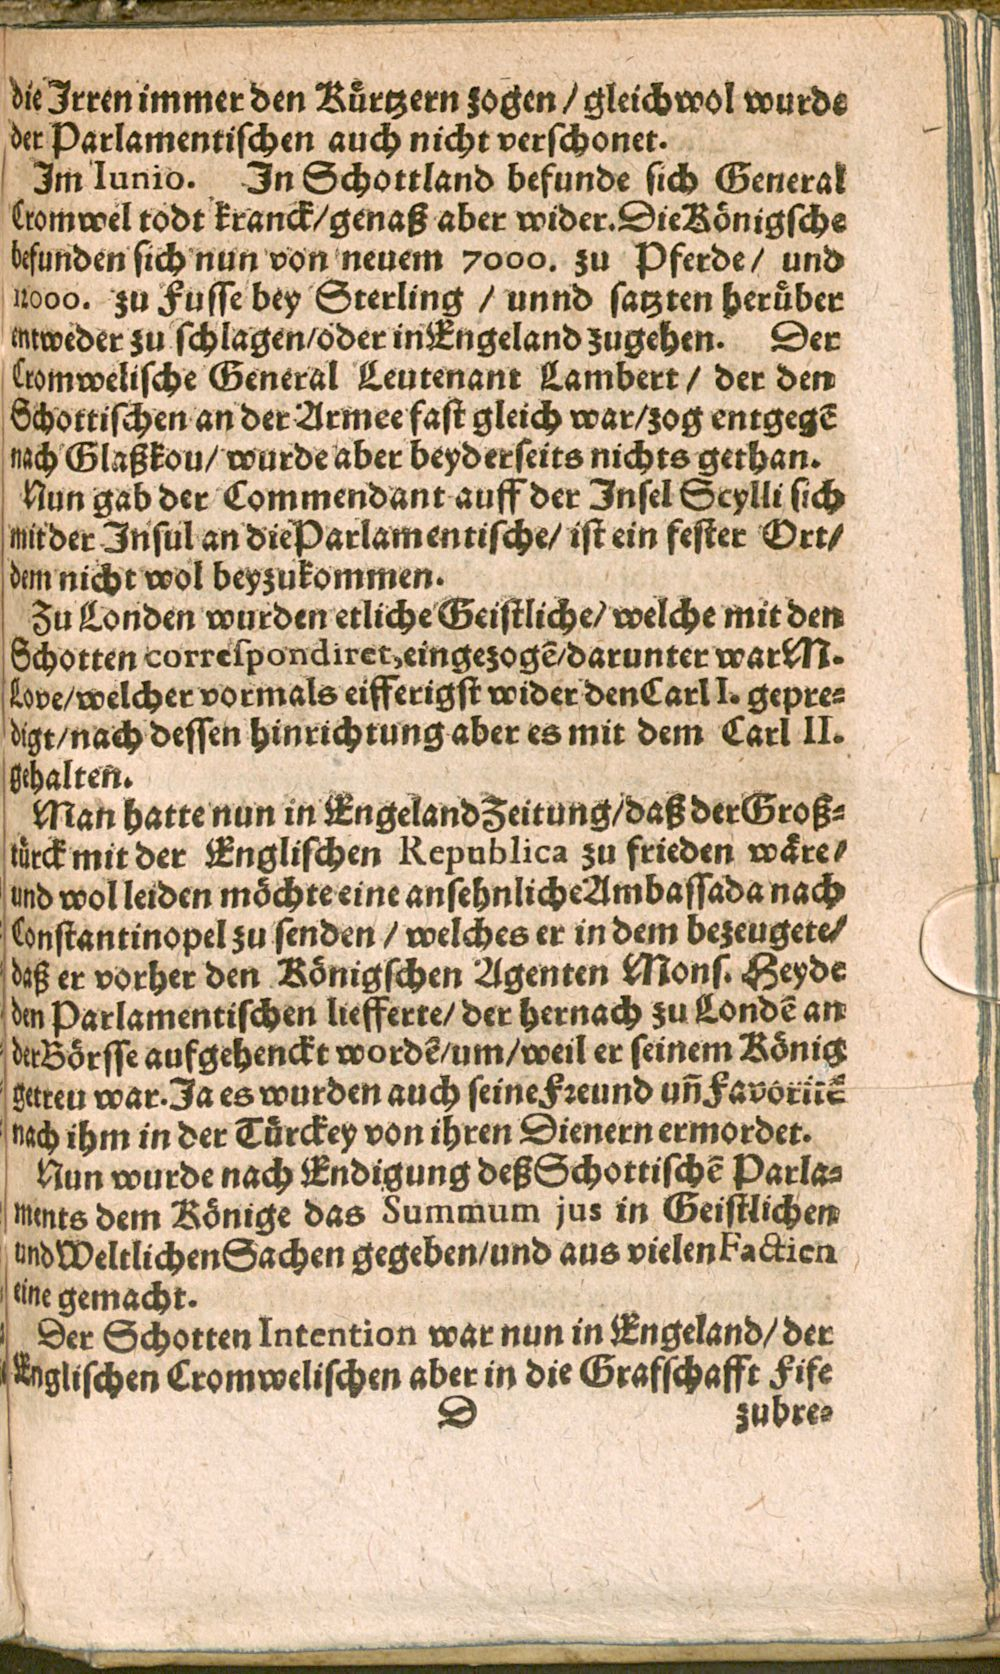 die Irren immer den Kürtzern zogen / gleichwol wurde
der Parlamentischen auch nicht verschonet.
Im Iunio. In Schottland befunde sich General
Cromwel todt kranck/genaß aber wider. Die Königsche
befunden sich nun von neuem 7000. zu Pferde/ und
12000. zu Fusse bey Sterling / unnd satzten herüber
entweder zu schlagen/oder in Engeland zugehen. Der
Cromwelische General Leutenant Lambert / der den
Schottischen an der Armee fast gleich war/zog entgegē
nach Glaßkou/ wurde aber beyderseits nichts gethan.
Nun gab der Commendant auff der Insel Scylli sich
mit der Insul an die Parlamentische/ ist ein fester Ort/
dem nicht wol beyzukommen.
Zu Londen wurden etliche Geistliche/ welche mit den
Schotten correspondiret, eingezogē/darunter war M.
Love/welcher vormals eifferigst wider den Carl I. gepre-
digt/nach dessen hinrichtung aber es mit dem Carl II.
gehalten.
Man hatte nun in Engeland Zeitung/daß der Groß-
türck mit der Englischen Republica zu frieden wäre/
und wol leiden möchte eine ansehnliche Ambassada nach
Constantinopel zu senden / welches er in dem bezeugete/
daß er vorher den Königschen Agenten Mons. Heyde
den Parlamentischen liefferte/ der hernach zu Londē an
der Börsse aufgehenckt wordē/um/weil er seinem König
getreu war. Ja es wurden auch seine Freund uñ Favoritē
nach ihm in der Türckey von ihren Dienern ermordet.
Nun wurde nach Endigung deß Schottischē Parla-
ments dem Könige das Summum jus in Geistlichen
und Weltlichen Sachen gegeben/und aus vielen Faction
eine gemacht.
Der Schotten Intention war nun in Engeland/ der
Englischen Cromwelischen aber in die Grafschafft Fife
D zubre-